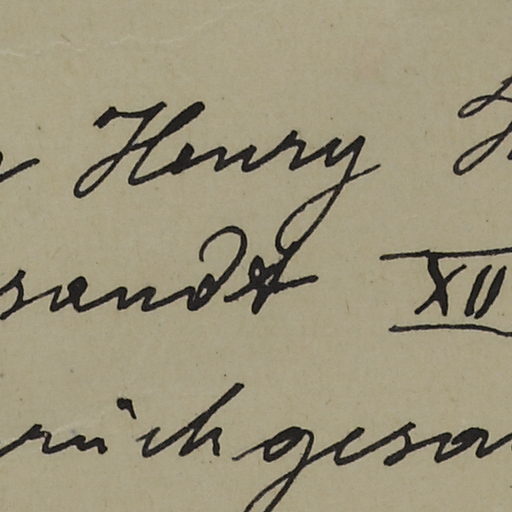 Henry
sandt XII
rückgesa